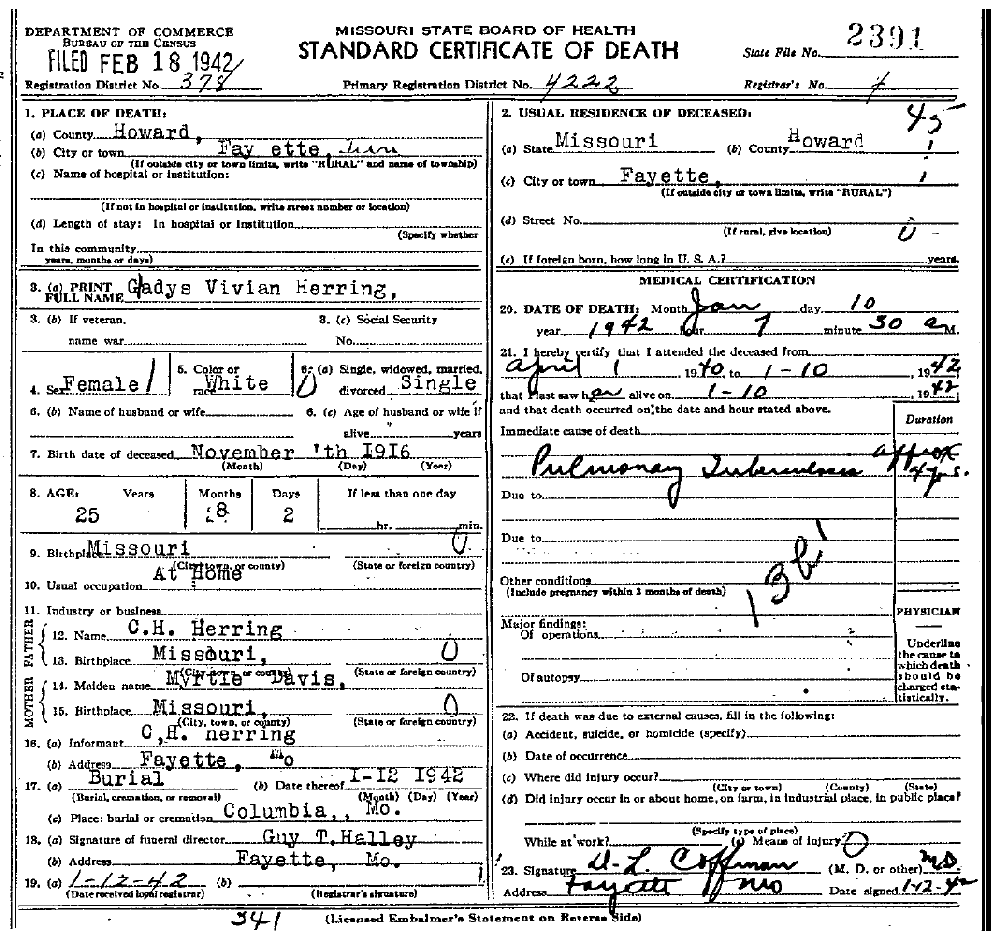 DEPARTMENT OF COMMERCE
BUREAU OF THE CENSUS
FILED FEB 18 1942
MISSOURI STATE BOARD OF HEALTH
STANDARD CERTIFICATE OF DEATH
State File No. 2391
Registration District No. 378
Primary Registration District No. 4222
Registrar's No.
1. PLACE OF DEATH:
(a) County Howard,
(b) City or town Fay ette,
(If outside city or town limits, write "RURAL" and name of township)
(c) Name of hospital or institution:
(If not in hospital or institution, write street number or location)
(d) Length of stay: In hospital or institution
(Specify whether
In this community
years, months or days)
3. (a) PRINT FULL NAME Gladys Vivian Herring,
3. (b) If veteran, name war
3. (c) Social Security No.
4. Sex Female
5. Color or race White
6. (a) Single, widowed, married, divorced Single
6. (b) Name of husband or wife
6. (c) Age of husband or wife if alive years
7. Birth date of deceased November 'th 1916
(Month) (Day) (Year)
8. AGE: Years Months Days If less than one day
25 2 hr. min.
9. Birthplace Missouri 0
(City, town, or county) (State or foreign country)
10. Usual occupation At Home
11. Industry or business
FATHER
12. Name C.H. Herring
13. Birthplace Missouri, 0
(City, town, or county) (State or foreign country)
MOTHER
14. Maiden name Myrtle Davis,
15. Birthplace Missouri, 0
(City, town, or county) (State or foreign country)
16. (a) Informant C,H. Herring
(b) Address Fayette, Mo
17. (a) Burial (b) Date thereof 1-12 1942
(Burial, cremation, or removal) (Month) (Day) (Year)
(c) Place: burial or cremation Columbia,, Mo.
18. (a) Signature of funeral director Guy T.Halley
(b) Address Fayette, Mo.
19. (a) 1-12-42 (b)
(Date received local registrar) (Registrar's signature)
2. USUAL RESIDENCE OF DECEASED: 45
(a) State Missouri (b) County Howard 1
(c) City or town Fayette, 1
(If outside city or town limits, write "RURAL")
(d) Street No.
(If rural, give location) 0
(e) If foreign born, how long in U. S. A.? years.
MEDICAL CERTIFICATION
20. DATE OF DEATH: Month Jan day 10
year 1942 hour 7 minute 30 a M.
21. I hereby certify that I attended the deceased from
April 1 1940 to 1-10 1942
that I last saw her alive on 1-10 1942
and that death occurred on the date and hour stated above.
Duration
Immediate cause of death
Pulmonary Tuberculosis approx 4 yrs.
Due to
Due to
Other conditions
(Include pregnancy within 3 months of death)
Major findings:
Of operations
Of autopsy
PHYSICIAN
Underline the cause to which death should be charged statistically.
22. If death was due to external causes, fill in the following:
(a) Accident, suicide, or homicide (specify)
(b) Date of occurrence
(c) Where did injury occur?
(City or town) (County) (State)
(d) Did injury occur in or about home, on farm, in industrial place, in public place?
(Specify type of place)
While at work? (e) Means of injury 0
23. Signature (M. D. or other) M.D.
Address Fayette Mo Date signed 1-12-42
341
(Licensed Embalmer's Statement on Reverse Side)